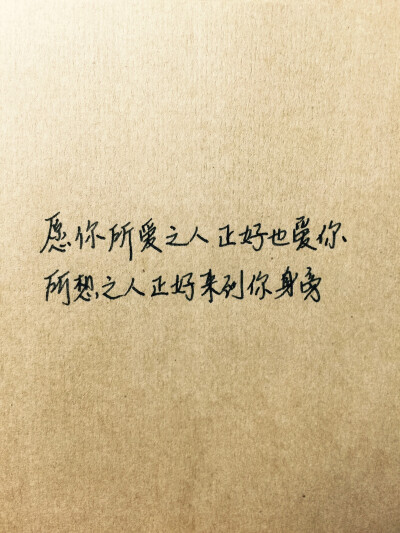 愿你所爱之人正好也爱你、
所想之人正好来到你身旁